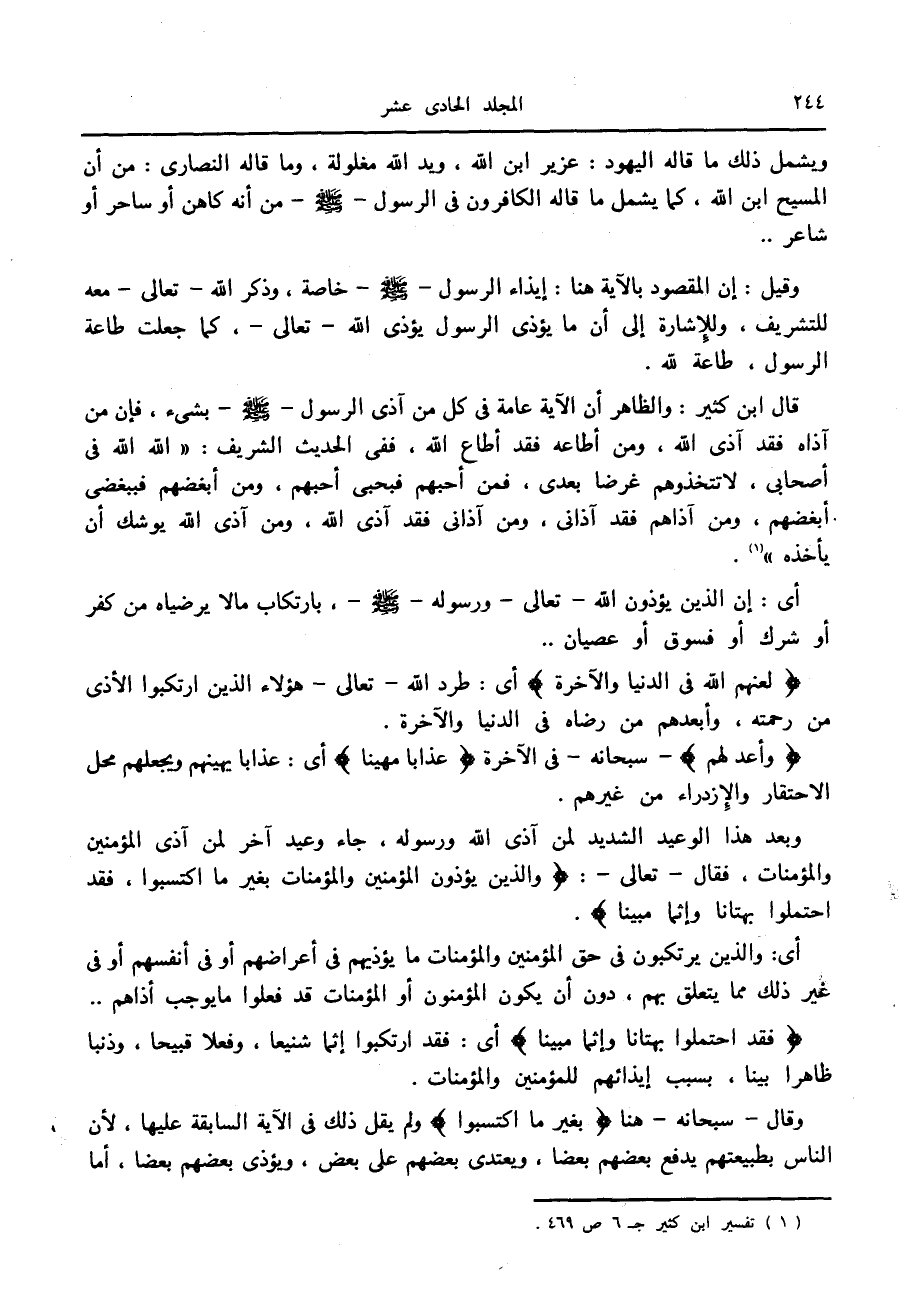 ٢٤٤
المجلد الحادى عشر
ويشمل ذلك ما قاله اليهود : عزير ابن الله ، ويد الله مغلولة ، وما قاله النصارى : من أن
المسيح ابن الله ، كما يشمل ما قاله الكافرون فى الرسول - ﷺ - من أنه كاهن أو ساحر أو
شاعر ..
وقيل : إن المقصود بالآية هنا : إيذاء الرسول - ﷺ - خاصة ، وذكر الله - تعالى - معه
للتشريف ، وللإشارة إلى أن ما يؤذى الرسول يؤذى الله - تعالى - ، كما جعلت طاعة
الرسول ، طاعة لله .
قال ابن كثير : والظاهر أن الآية عامة فى كل من آذى الرسول - ﷺ - بشىء ، فإن من
آذاه فقد آذى الله ، ومن أطاعه فقد أطاع الله ، ففى الحديث الشريف : « الله الله فى
أصحابى ، لاتتخذوهم غرضا بعدى ، فمن أحبهم فبحبى أحبهم ، ومن أبغضهم فببغضى
أبغضهم ، ومن آذاهم فقد آذانى ، ومن آذانى فقد آذى الله ، ومن آذى الله يوشك أن
يأخذه »(١) .
أى : إن الذين يؤذون الله - تعالى - ورسوله - ﷺ - ، بارتكاب مالا يرضياه من كفر
أو شرك أو فسوق أو عصيان ..
﴿ لعنهم الله فى الدنيا والآخرة ﴾ أى : طرد الله - تعالى - هؤلاء الذين ارتكبوا الأذى
من رحمته ، وأبعدهم من رضاه فى الدنيا والآخرة .
﴿ وأعد لهم ﴾ - سبحانه - فى الآخرة ﴿ عذابا مهينا ﴾ أى : عذابا يهينهم ويجعلهم محل
الاحتقار والإزدراء من غيرهم .
وبعد هذا الوعيد الشديد لمن آذى الله ورسوله ، جاء وعيد آخر لمن آذى المؤمنين
والمؤمنات ، فقال - تعالى - : ﴿ والذين يؤذون المؤمنين والمؤمنات بغير ما اكتسبوا ، فقد
احتملوا بهتانا وإثما مبينا ﴾ .
أى: والذين يرتكبون فى حق المؤمنين والمؤمنات ما يؤذيهم فى أعراضهم أو فى أنفسهم أو فى
غير ذلك مما يتعلق بهم ، دون أن يكون المؤمنون أو المؤمنات قد فعلوا مايوجب أذاهم ..
﴿ فقد احتملوا بهتانا وإثما مبينا ﴾ أى : فقد ارتكبوا إثما شنيعا ، وفعلا قبيحا ، وذنبا
ظاهرا بينا ، بسبب إيذائهم للمؤمنين والمؤمنات .
وقال - سبحانه - هنا ﴿ بغير ما اكتسبوا ﴾ ولم يقل ذلك فى الآية السابقة عليها ، لأن
الناس بطبيعتهم يدفع بعضهم بعضا ، ويعتدى بعضهم على بعض ، ويؤذى بعضهم بعضا ، أما
( ١ ) تفسير ابن كثير جـ ٦ ص ٤٦٩ .